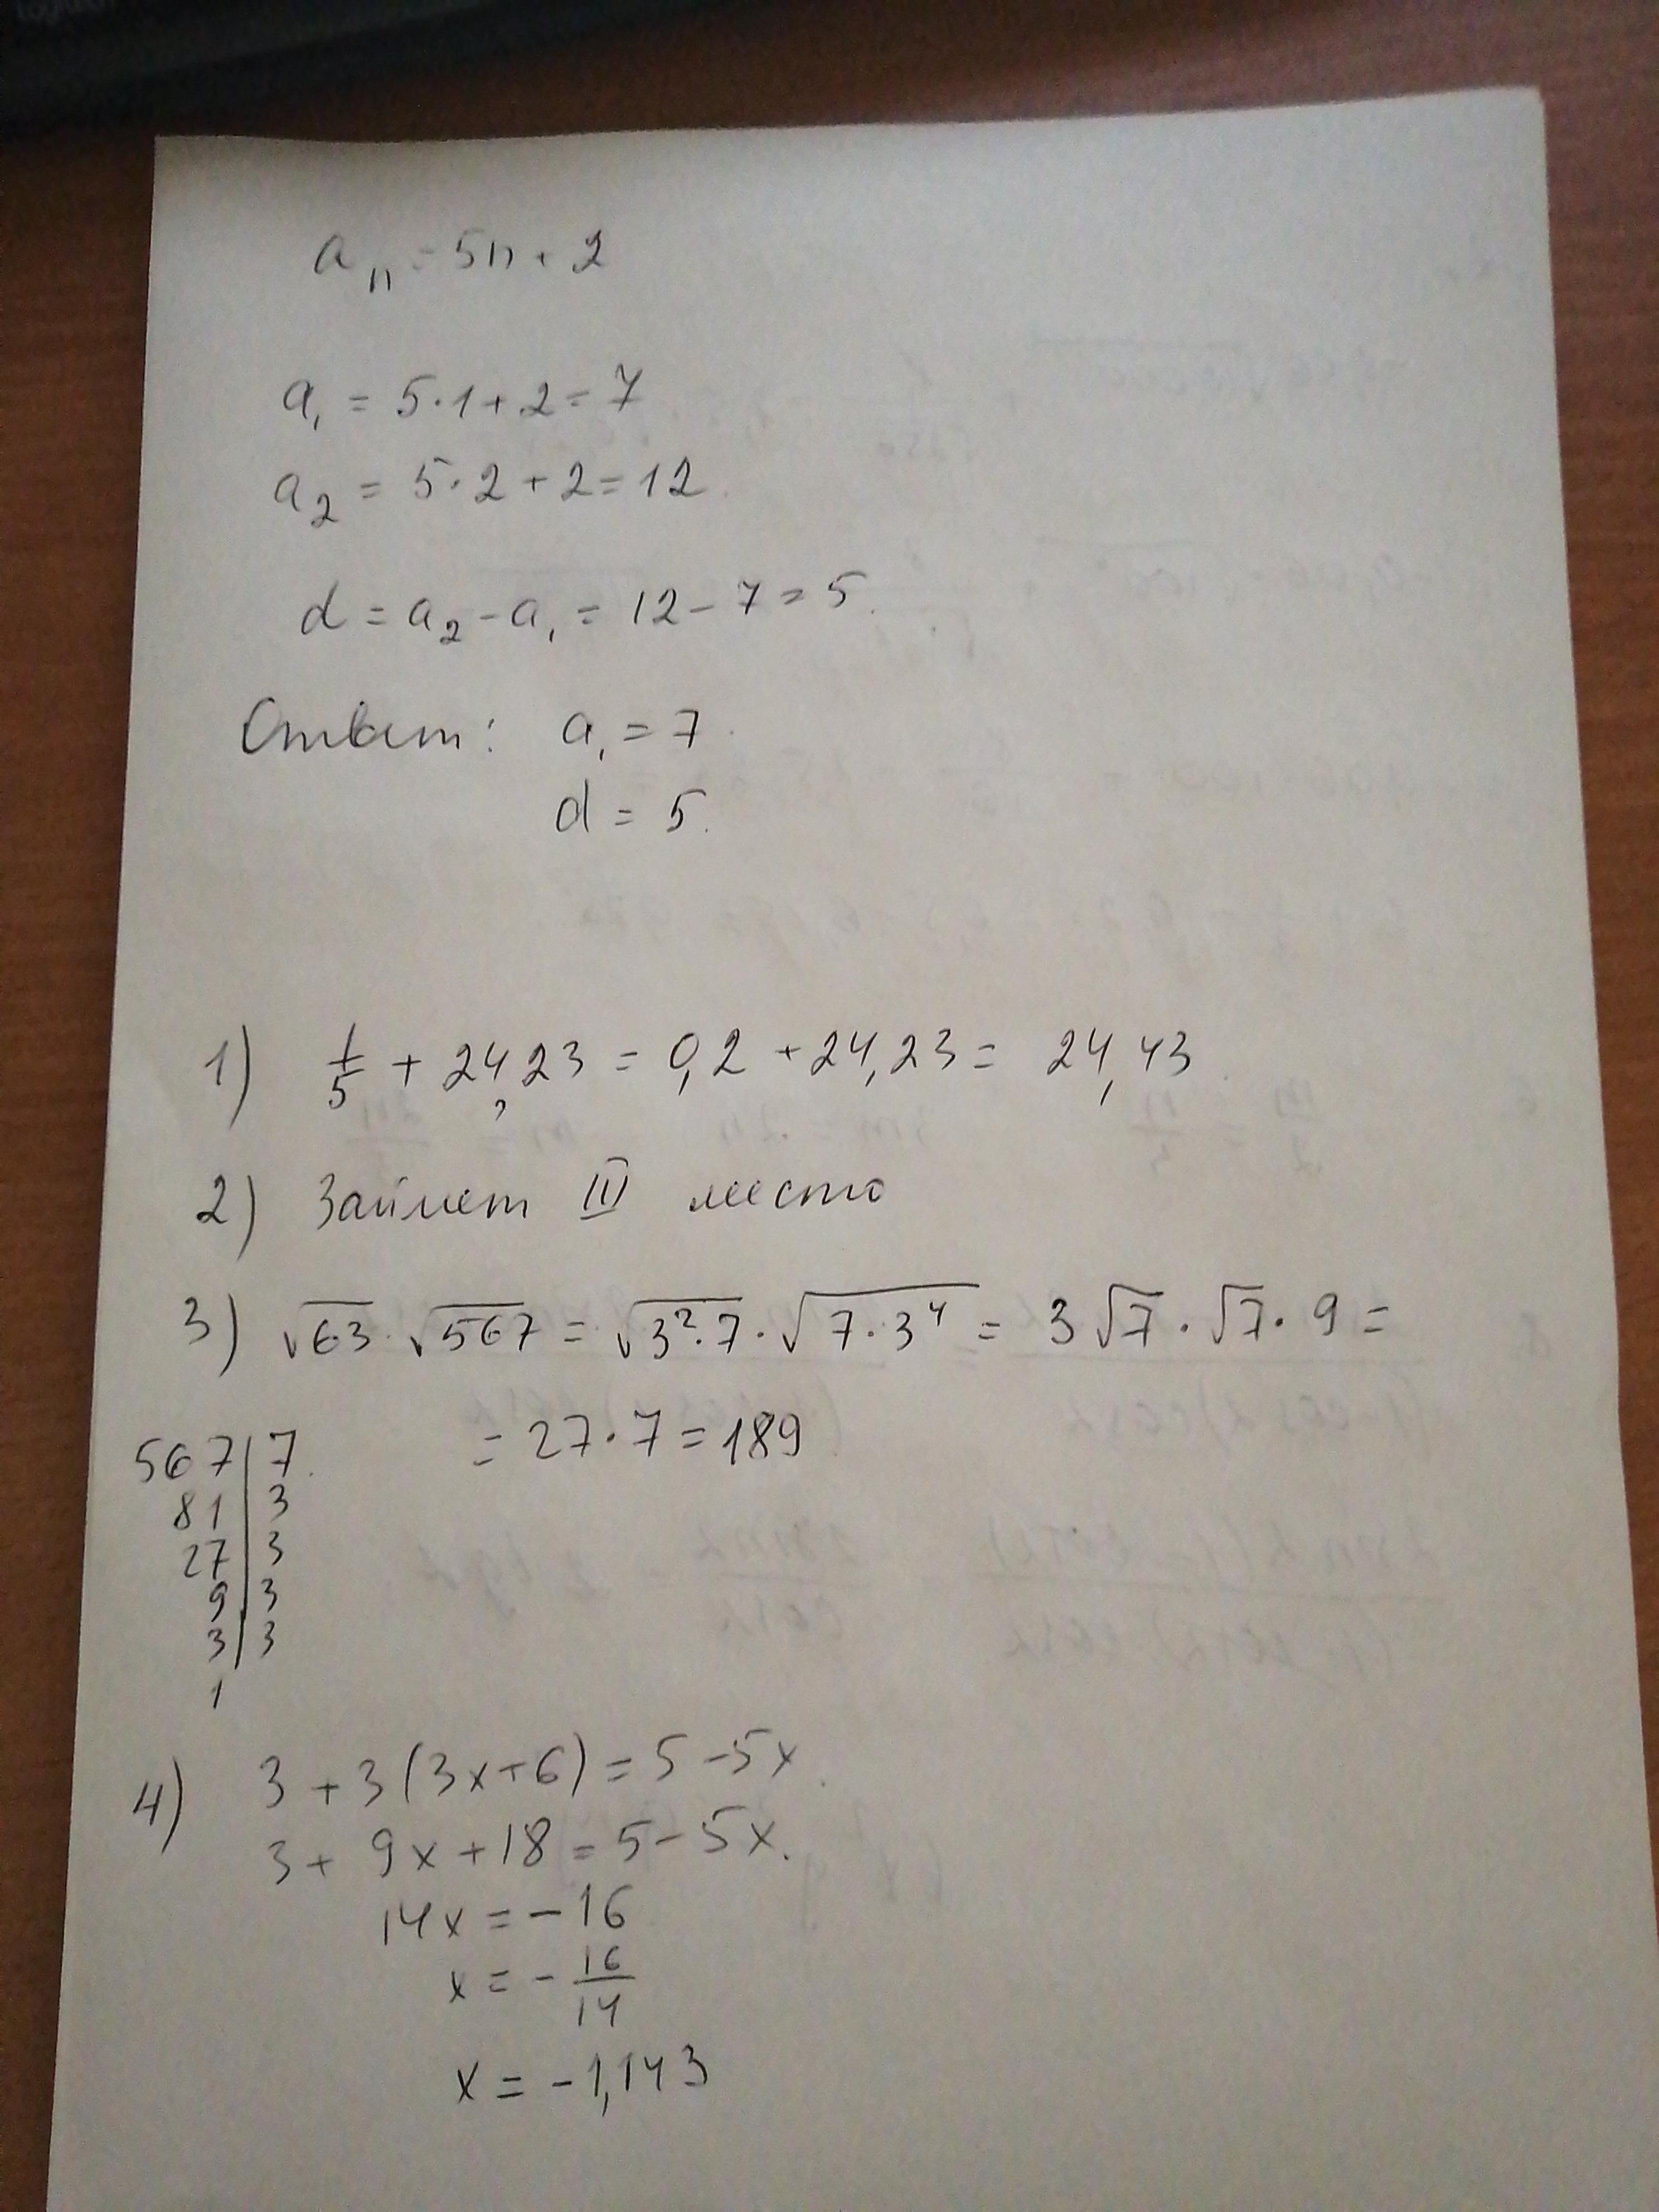 aₙ = 5n + 2
a₁ = 5·1 + 2 = 7
a₂ = 5·2 + 2 = 12
d = a₂ - a₁ = 12 - 7 = 5.
Ответ: a₁ = 7
d = 5.
1) 1/5 + 24,23 = 0,2 + 24,23 = 24,43
2) Займет III место
3) √63 · √567 = √3²·7 · √7·3⁴ = 3√7 · √7 · 9 =
= 27·7 = 189
567 | 7
81 | 3
27 | 3
9 | 3
3 | 3
1
4) 3 + 3(3x + 6) = 5 - 5x
3 + 9x + 18 = 5 - 5x.
14x = -16
x = - 16/14
x = -1,143